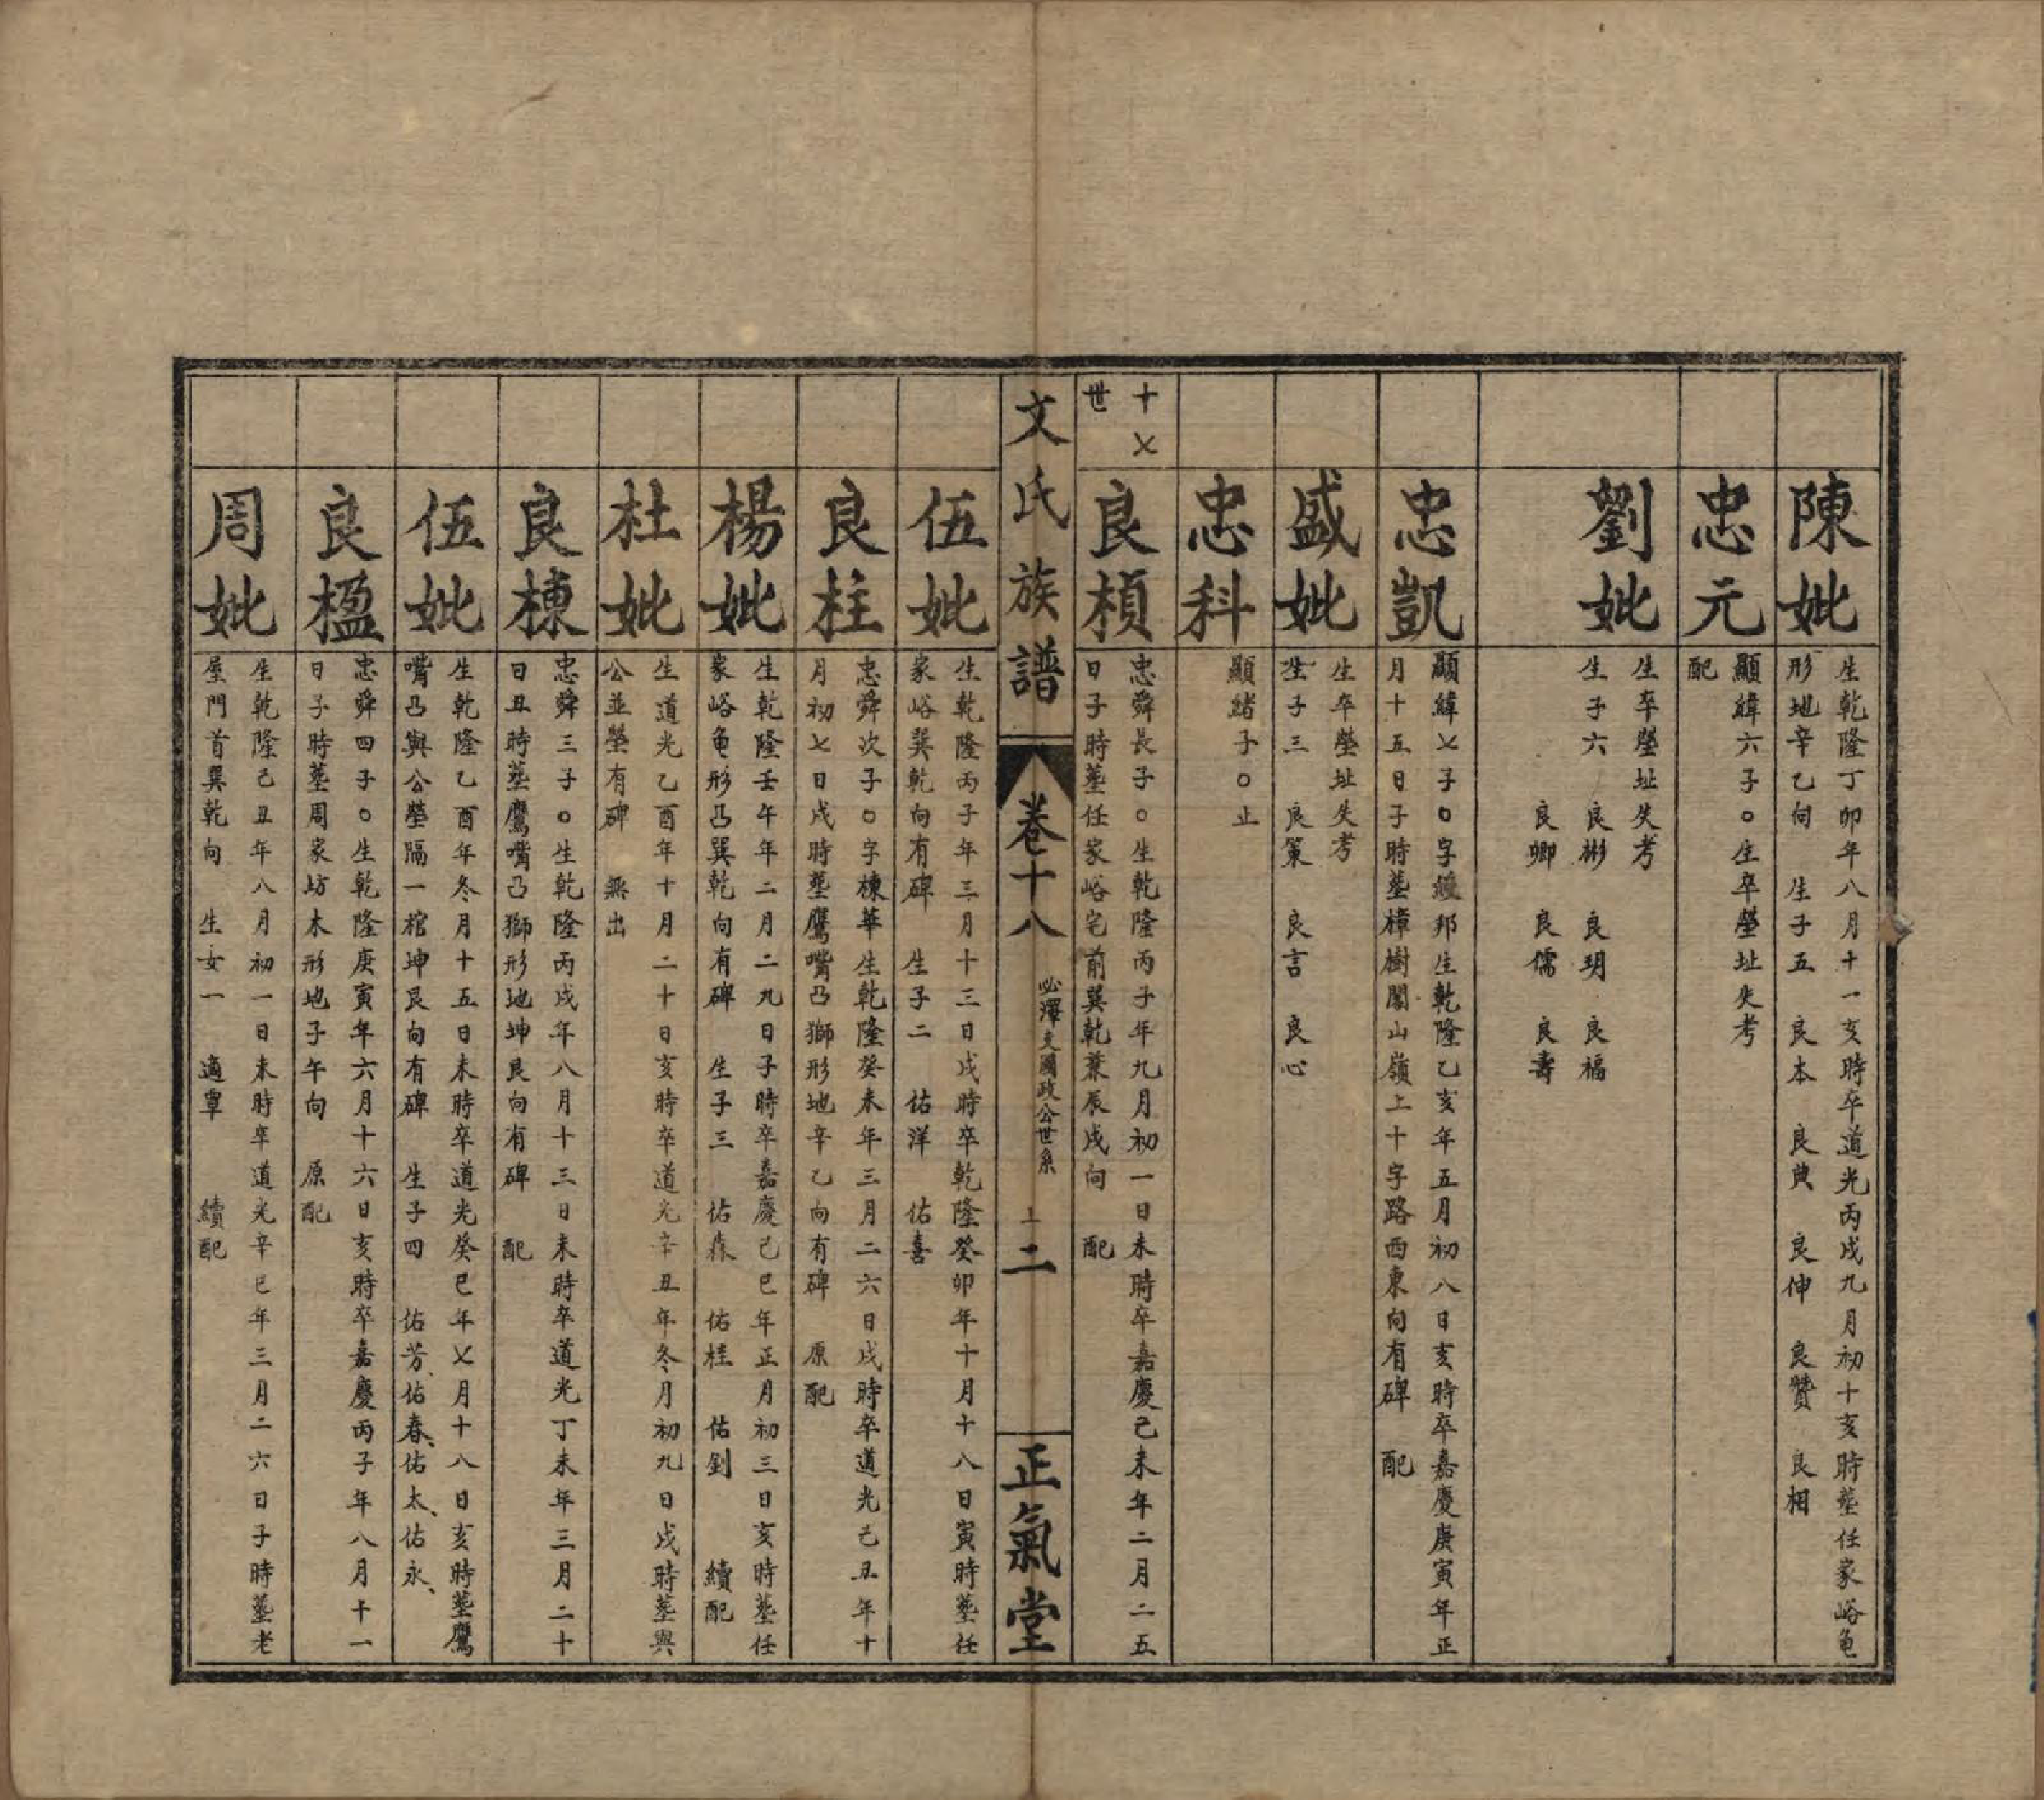 陳妣
生乾隆丁卯年八月十一亥時卒道光丙戌九月初十亥時塟任家峪龟
形地辛乙向　生子五　良本　良典　良伸　良贊　良相
忠元
顯緯六子○生卒塋址失考
配
劉妣
生卒塋址失考
生子六　良彬　良玥　良福
良卿　良儒　良壽
忠凱
顯緯乂子○字緩邦生乾隆乙亥年五月初八日亥時卒嘉慶庚寅年正
月十五日子時塟樟樹閣山嶺上十字路西東向有碑　配
盛妣
生卒塋址失考
生子三　良策　良言　良心
忠科
顯緒子○止
十乂
世
良楨
忠舜長子○生乾隆丙子年九月初一日未時卒嘉慶己未年二月二五
日子時塟任家峪宅前巽乾兼辰戌向　配
文氏族譜
卷十八
必澤支國政公世系
上二
正氣堂
伍妣
生乾隆丙子年三月十三日戌時卒乾隆癸卯年十月十八日寅時塟任
家峪巽乾向有碑　生子二　佑洋　佑喜
良柱
忠舜次子○字棟華生乾隆癸未年三月二六日戌時卒道光己丑年十
月初乂日戌時塟鷹嘴凸獅形地辛乙向有碑　原配
楊妣
生乾隆壬午年二月二九日子時卒嘉慶己巳年正月初三日亥時塟任
家峪龟形凸巽乾向有碑　生子三　佑森　佑桂　佑劉　續配
杜妣
生道光乙酉年十月二十日亥時卒道光辛丑年冬月初九日戌時塟與
公並塋有碑　無出
良棟
忠舜三子○生乾隆丙戌年八月十三日未時卒道光丁未年三月二十
日丑時塟鷹嘴凸獅形地坤艮向有碑　配
伍妣
生乾隆乙酉年冬月十五日未時卒道光癸巳年乂月十八日亥時塟鷹
嘴凸與公塋隔一棺坤艮向有碑　生子四　佑芳、佑春、佑太、佑永、
良楹
忠舜四子○生乾隆庚寅年六月十六日亥時卒嘉慶丙子年八月十一
日子時塟周家坊木形地子午向　原配
周妣
生乾隆己丑年八月初一日未時卒道光辛巳年三月二六日子時塟老
屋門首巽乾向　生女一　適覃　續配